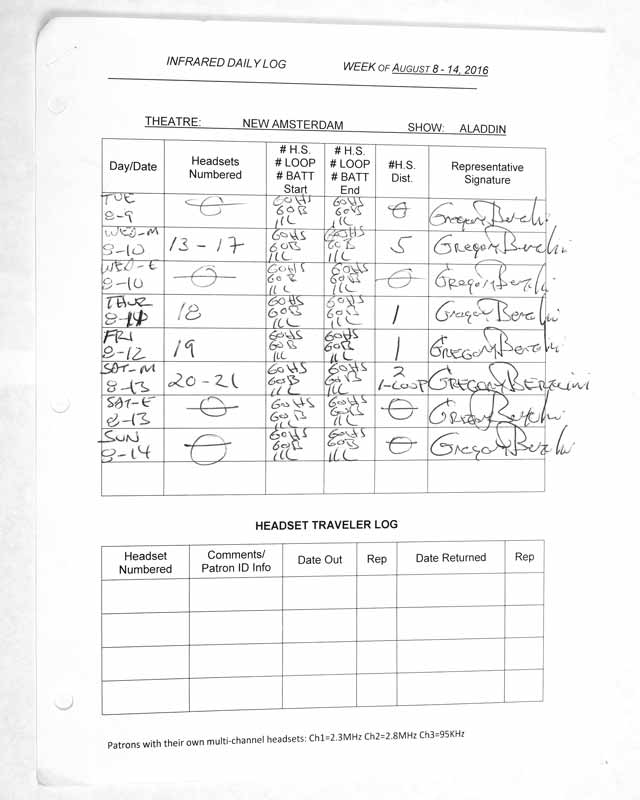 INFRARED DAILY LOG WEEK OF AUGUST 8 - 14, 2016
THEATRE: NEW AMSTERDAM SHOW: ALADDIN
Day/Date
Headsets
Numbered
# H.S.
# LOOP
# BATT
Start
# H.S.
# LOOP
# BATT
End
#H.S.
Dist.
Representative
Signature
TUE
8-9
60HS
60B
1LL
60HS
60B
1LL
Gregory
WED-M
8-10
13-17
60HS
60B
1LL
60HS
60B
1LL
5
Gregory
WED-E
8-10
60HS
60B
1LL
60HS
60B
1LL
Gregory
THUR
8-11
18
60HS
60B
1LL
60HS
60B
1LL
1
Gregory
FRI
8-12
19
60HS
60B
1LL
60HS
60B
1LL
1
GREGORY
SAT-M
8-13
20-21
60HS
60B
1LL
60HS
60B
1LL
2
1-LOOP
GREGORY
SAT-E
8-13
60HS
60B
1LL
60HS
60B
1LL
Gregory
SUN
8-14
60HS
60B
1LL
60HS
60B
1LL
Gregory
HEADSET TRAVELER LOG
Headset
Numbered
Comments/
Patron ID Info
Date Out
Rep
Date Returned
Rep
Patrons with their own multi-channel headsets: Ch1=2.3MHz Ch2=2.8MHz Ch3=95KHz